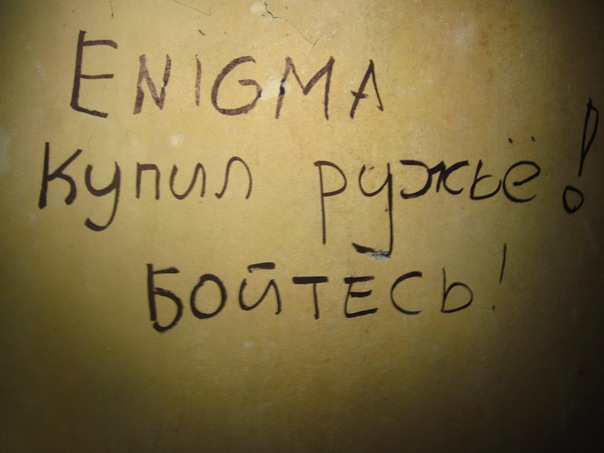 ENIGMA
купил ружьё!
БОЙТЕСЬ!